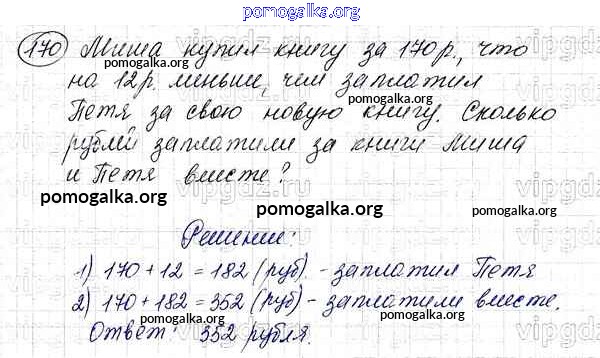 pomogalka.org
170 Миша купил книгу за 170 р., что
на 12 р. меньше, чем заплатил
pomogalka.org pomogalka.org
Петя за свою новую книгу. Сколько
pomogalka.org
рублей заплатили за книги Миша
и Петя вместе?
pomogalka.org
pomogalka.org pomogalka.org
Решение:
pomogalka.org
1) 170 + 12 = 182 (руб). - заплатил Петя
2) 170 + 182 = 352 (руб) - заплатили вместе.
pomogalka.org
Ответ: 352 рубля.
pomogalka.org